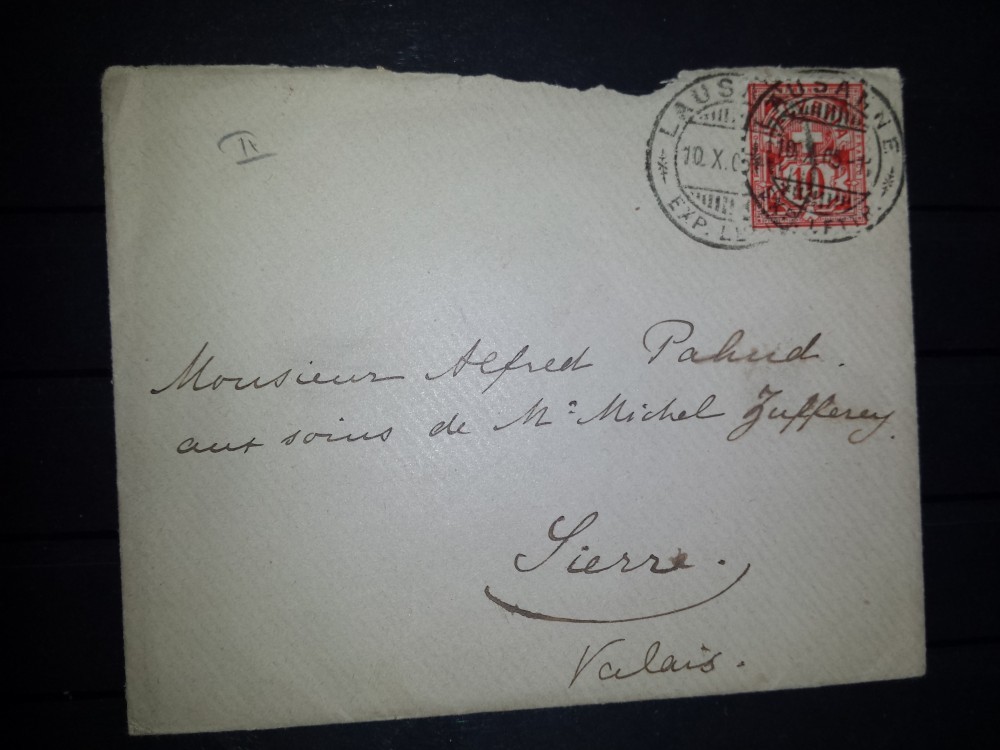 II
LAUSANNE
LAUSANNE
10. X. 0
10
EXP. LE
Monsieur Alfred Pahud.
aux soins de Mr Michel Zufferey.
Sierre.
Valais.